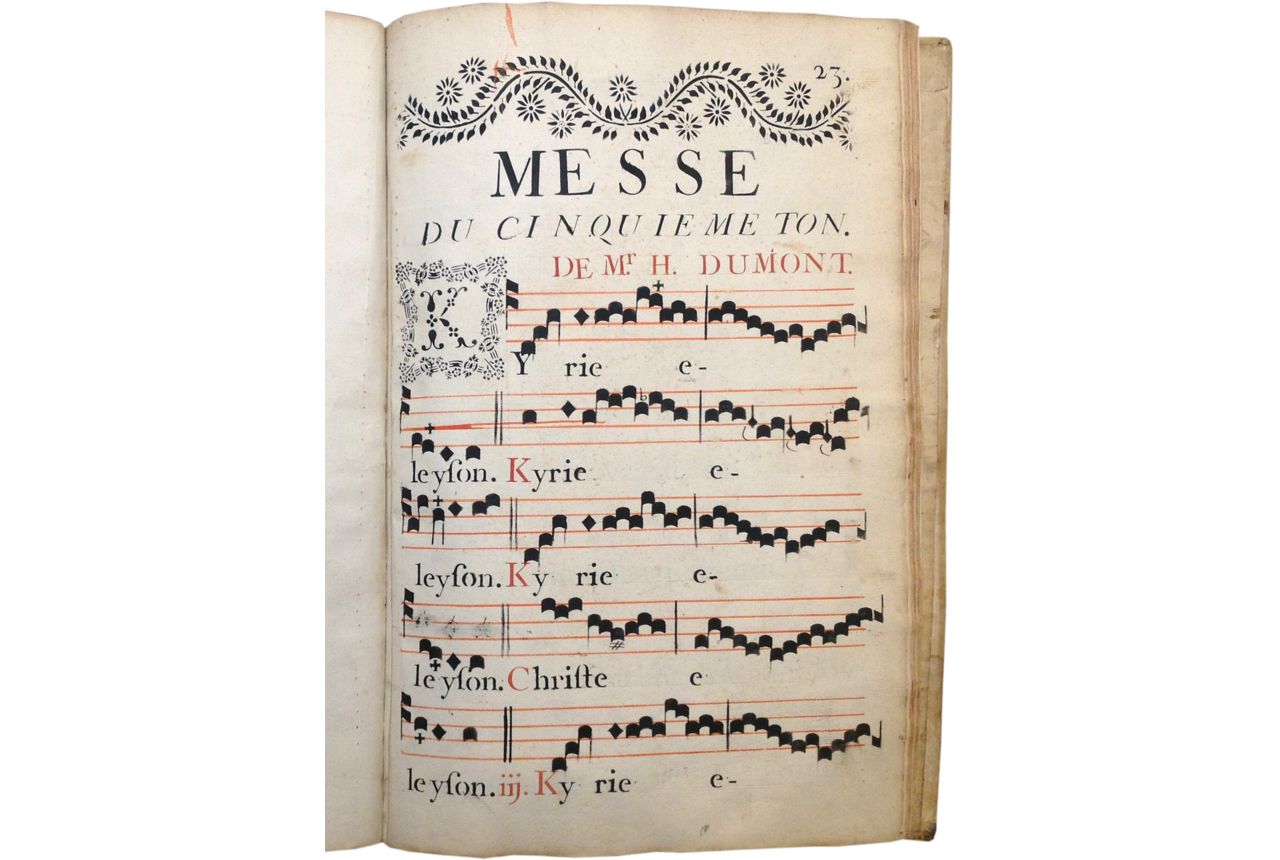 23.
MESSE
DU CINQUIEME TON.
DE Mr. H. DUMONT.
KYrie e-
leyſon. Kyrie e-
leyſon. Ky rie e-
leyſon. Chriſte e
leyſon. iij. Ky rie e-